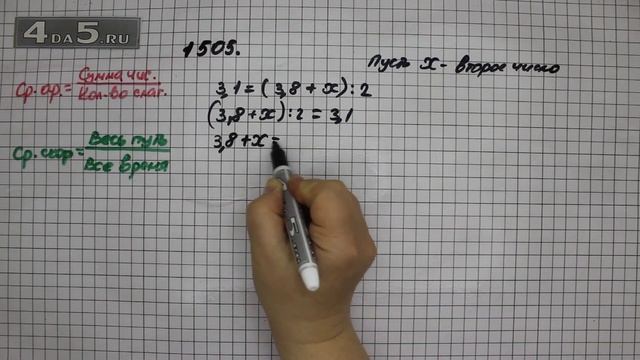 4DA5.RU
1505.
Пусть x - второе число
Ср. ар. = Сумма чис. / Кол-во слаг.
3,1 = (3,8 + x) : 2
(3,8 + x) : 2 = 3,1
3,8 + x =
Ср. скор = Весь путь / Все время